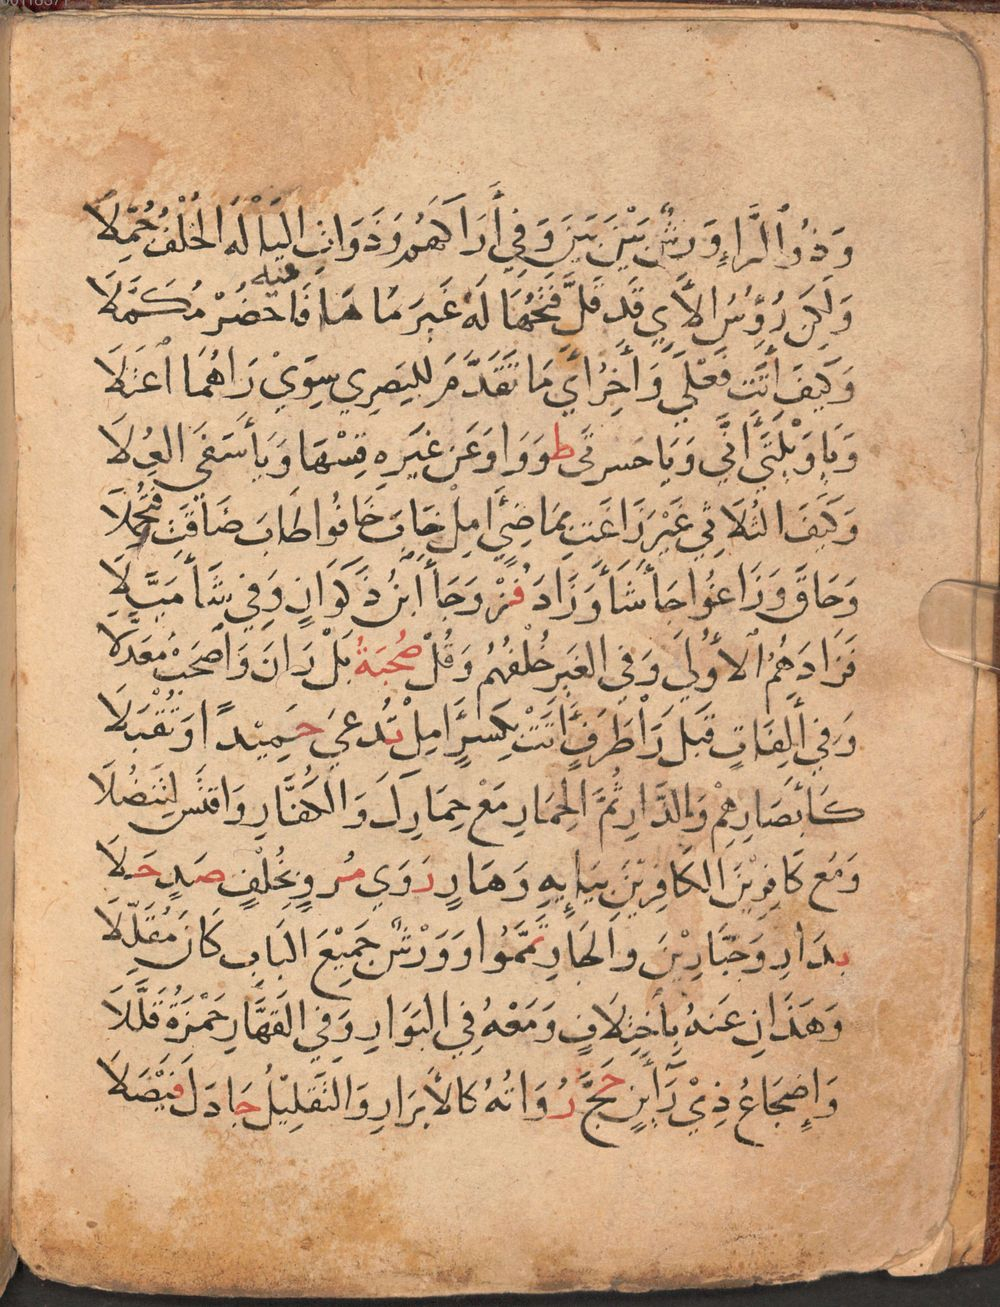 وَذُو الرَّاءِ وَرْشٌ بَيْنَ بَيْنَ وَفِي أَرَاكَهُمْ وَذَوَاتِ اليَا لَهُ الخُلْفُ جُمِّلَا
وَلَكِن رُؤُسُ الآيِ قَدْ قَلَّ فَتْحُهَا لَهُ غَيْرَ مَا هَا فِيهِ فَاحْضُرْ مُكَمَّلَا
وَكَيْفَ أَتَتْ فَعْلَى وَأَخِرُ آيِ مَا تَقَدَّمَ لِلبَصْرِي سِوَى رَاهُمَا اعْتَلَا
وَيَا وَيْلَتَى أَنَّى وَيَا حَسْرَتَى طَوَوْا وَعَن غَيْرِهِ قِسْهَا وَيَا أَسَفَى العُلَا
وَكَيْفَ الثُلَاثِي غَيْرَ زَاغَتْ بِمَاضِيٍ امِلْ خَابَ خَافُوا طَابَ ضَاقَتْ فَتُجْمِلَا
وَحَاقَ وَزَاغُوا جَاءَ شَاءَ وَزَادَ فُزْ وَجَاءَ ابْنُ ذَكْوَانٍ وَفِي شَاءَ مَيَّلَا
فَزَادَهُمُ الأُولَى وَفِي الغَيْرِ خُلْفُهُمْ وَقُلْ صُحْبَةٌ بَلْ رَانَ وَاصْحَبْ مُعَدَّلَا
وَفِي أَلِفَاتٍ قَبْلَ رَا طَرَفٍ أَتَتْ بِكَسْرٍ امِلْ تُدْعَى حَمِيْدًا وَتُقْبَلَا
كَأَبْصَارِهِمْ وَالدَّارِ ثُمَّ الحِمَارِ مَعْ حِمَارِكَ وَالكُفَّارِ وَاقْتَسْ لِتَنْضُلَا
وَمَعَ كَافِرِيْنَ الكَافِرِيْنَ بِيَايِهِ وَهَارٍ رَوَى مُرْوٍ بِخُلْفٍ صَدٍ حَلَا
بِدَارِ وَجَبَّارِيْنَ وَالجَارِ تَمَّمُوا وَوَرْشٌ جَمِيْعَ البَابِ كَانَ مُقَلِّلَا
وَهَذَانِ عَنْهُ بِاخْتِلَافٍ وَمَعْهُ فِي البَوَارِ وَفِي القَهَّارِ حَمْزَةُ قَلَّلَا
وَإِضْجَاعُ ذِيْ رَأَيْنِ حَجَّ رُوَاتُهُ كَالأَبْرَارِ وَالتَّقْلِيْلُ جَادَلَ فَيْصَلَا